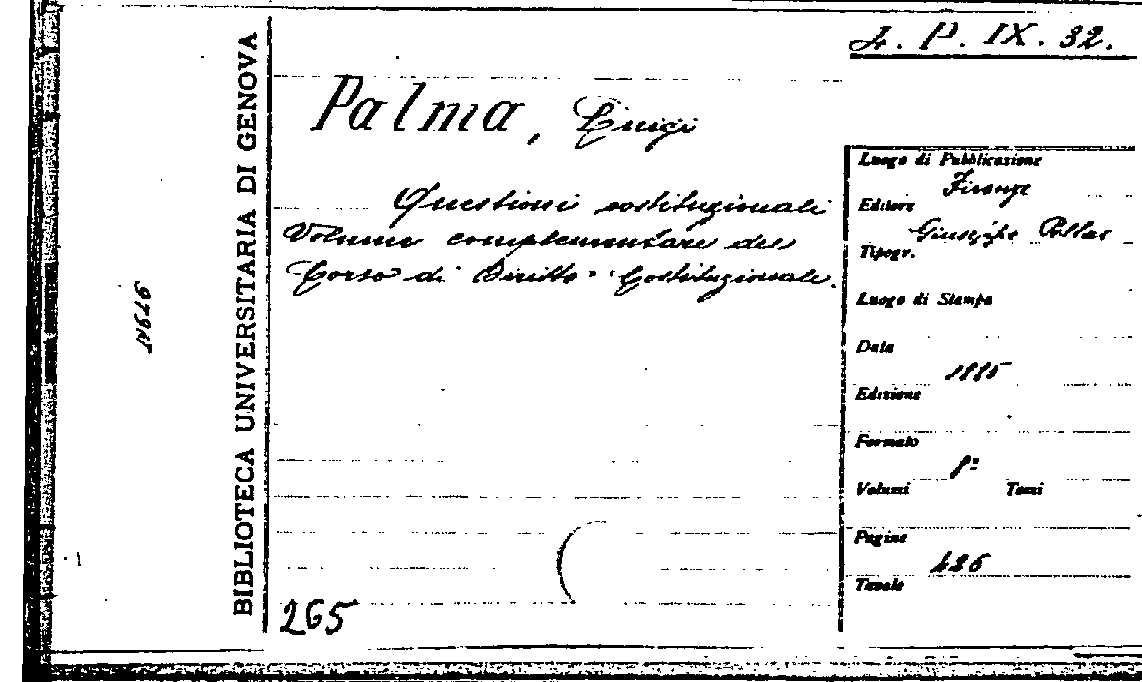 4. P. IX. 32.
BIBLIOTECA UNIVERSITARIA DI GENOVA
Palma, Luigi
Questioni costituzionali
Volume complementare del
Corso di Diritto Costituzionale.
265
Luogo di Pubblicazione
Firenze
Editore
Giuseppe Pellas
Tipogr.
Luogo di Stampa
Data
1885
Edizione
Formato
8º
Volumi Tomi
Pagine
426
Tavole